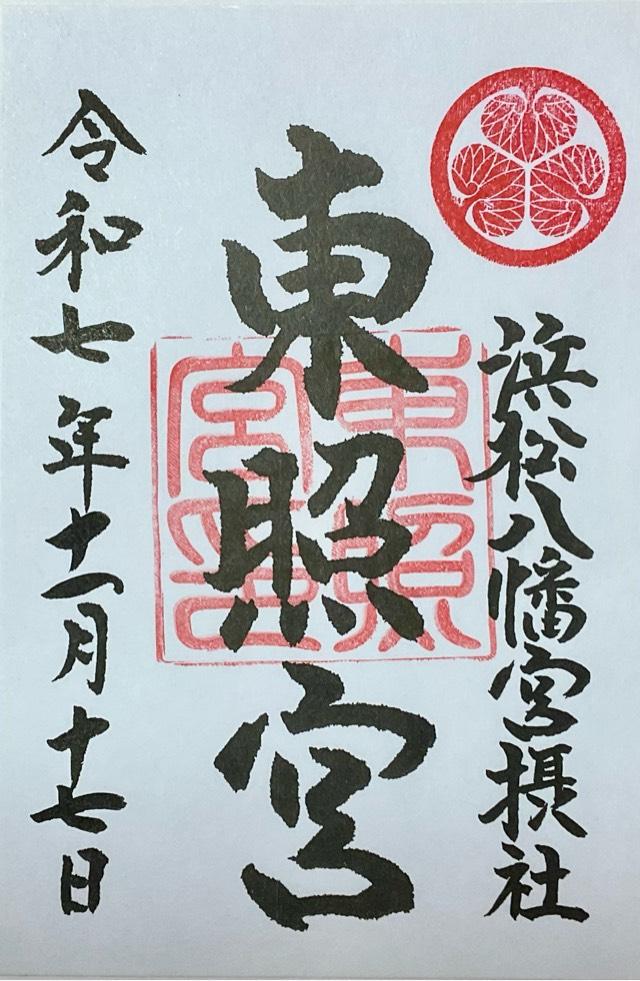 浜松八幡宮摂社
東照宮
東照宮印
令和七年十一月十七日